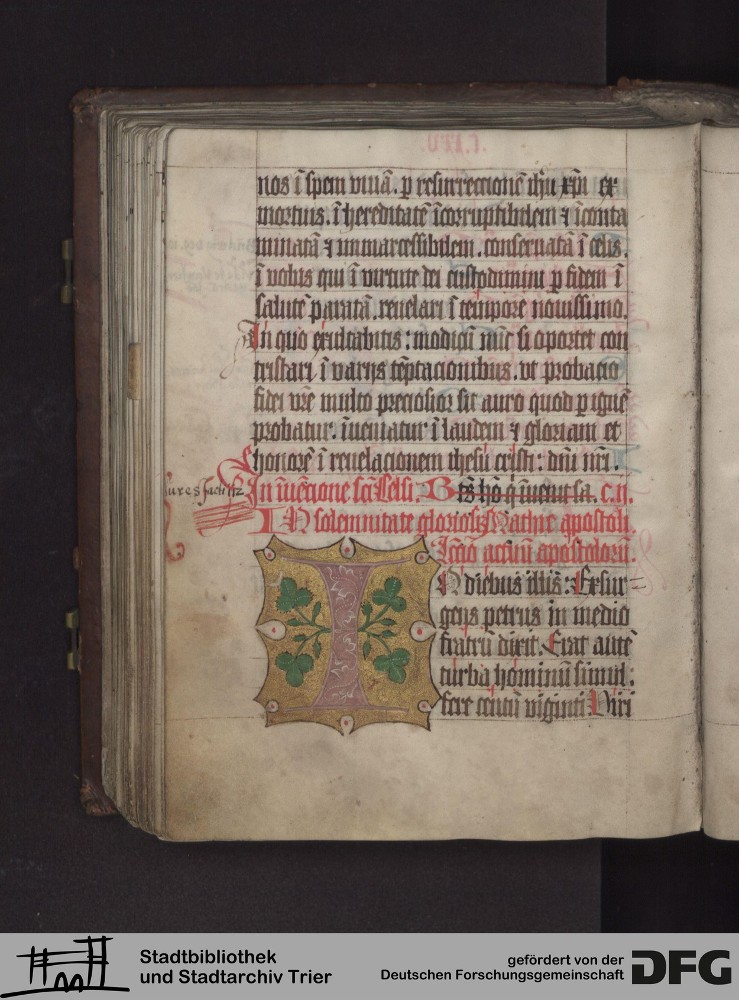 nos ĩ spem viuã. p resurrectionẽ ihũ xp̃i ex
mortuis. ĩ hereditatẽ ĩcorruptibilem ⁊ ĩconta
minatã ⁊ immarcessibilem. conseruatã ĩ celis.
ĩ vobis qui ĩ virtute dei custodimini p fidem ĩ
salutẽ paratã. reuelari ĩ tempore nouissimo.
In quo exultabitis: modicũ nũc si oportet con
tristari ĩ varijs tẽptacionibus. vt probacio
fidei vr̃e multo preciosior sit auro quod p ignẽ
probatur. ĩueniatur ĩ laudem ⁊ gloriam et
honorẽ ĩ reuelacionem ihesu cristi: dñi nr̃i.
In ĩuẽcione sc̃i Celsi. Bt̃s hõ q ĩuenit sa. c. ij.
IN solemnitate gloriosi Mathie apostoli.
Lc̃io actuũ apostolorũ.
IN diebus illis: Exsur-
gens petrus in medio
fratrũ dixit. Erat autẽ
turba hominũ simul:
fere centũ viginti. Viri
Stadtbibliothek
und Stadtarchiv Trier
gefördert von der
Deutschen Forschungsgemeinschaft
DFG